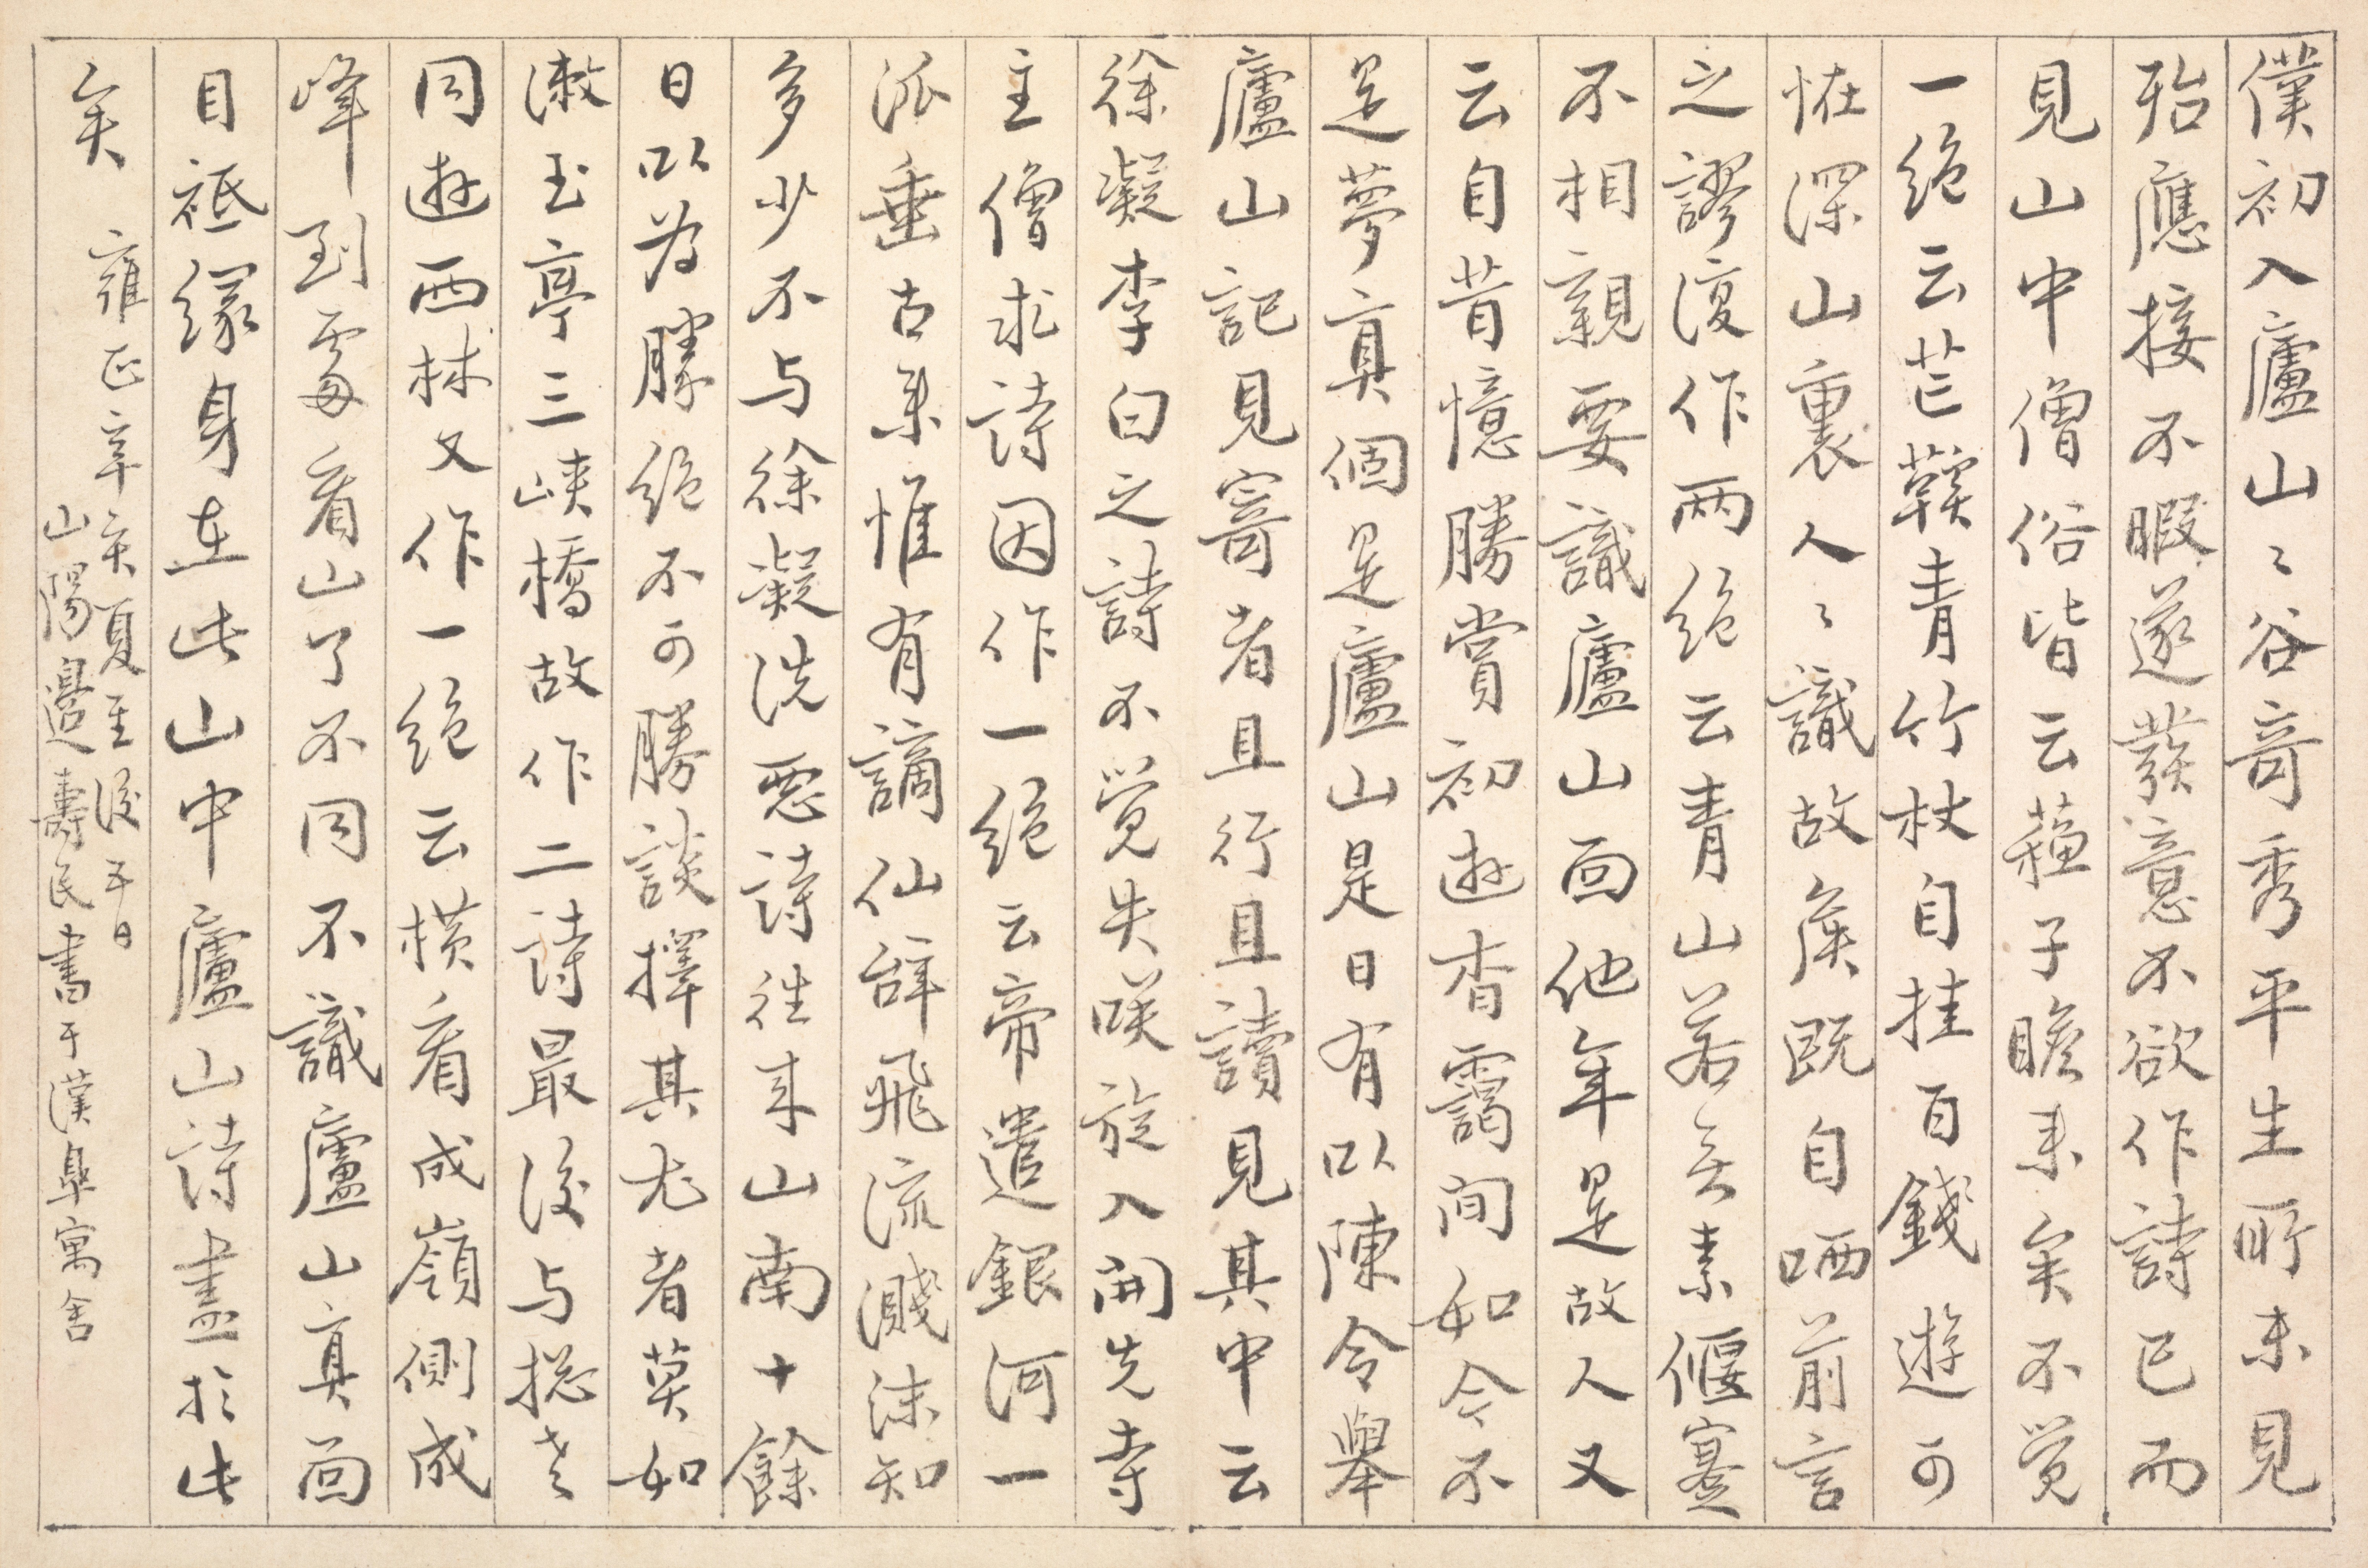 僕初入廬山〻谷竒秀平生所未見
殆應接不暇遂發意不欲作詩已而
見山中僧俗皆云蘓子瞻来矣不覚
一絶云芒鞵青竹杖自挂百錢遊可
恠深山裏人〻識故矦既自哂前言
之謬復作兩絶云青山若无素偃蹇
不相親要識廬山面他年是故人又
云自昔憶勝賞初遊杳靄间如今不
是夢真個是廬山是日有以陳令舉
廬山記見寄者且行且讀見其中云
徐凝李白之詩不覚失咲旋入開先寺
主僧求詩因作一絶云帝遣銀河一
派垂古来惟有謫仙辞飛流濺沫知
多少不与徐凝洗惡詩往来山南十餘
日以为勝絶不可勝談擇其尤者莫如
漱玉亭三峡橋故作二詩最後与摠老
同遊西林又作一绝云横看成嶺側成
峰到處看山了不同不識廬山真面
目祗缘身在此山中廬山詩盡於此
矣
雍正辛亥夏至後五日
山陽邉壽民書于漢臯寓舍